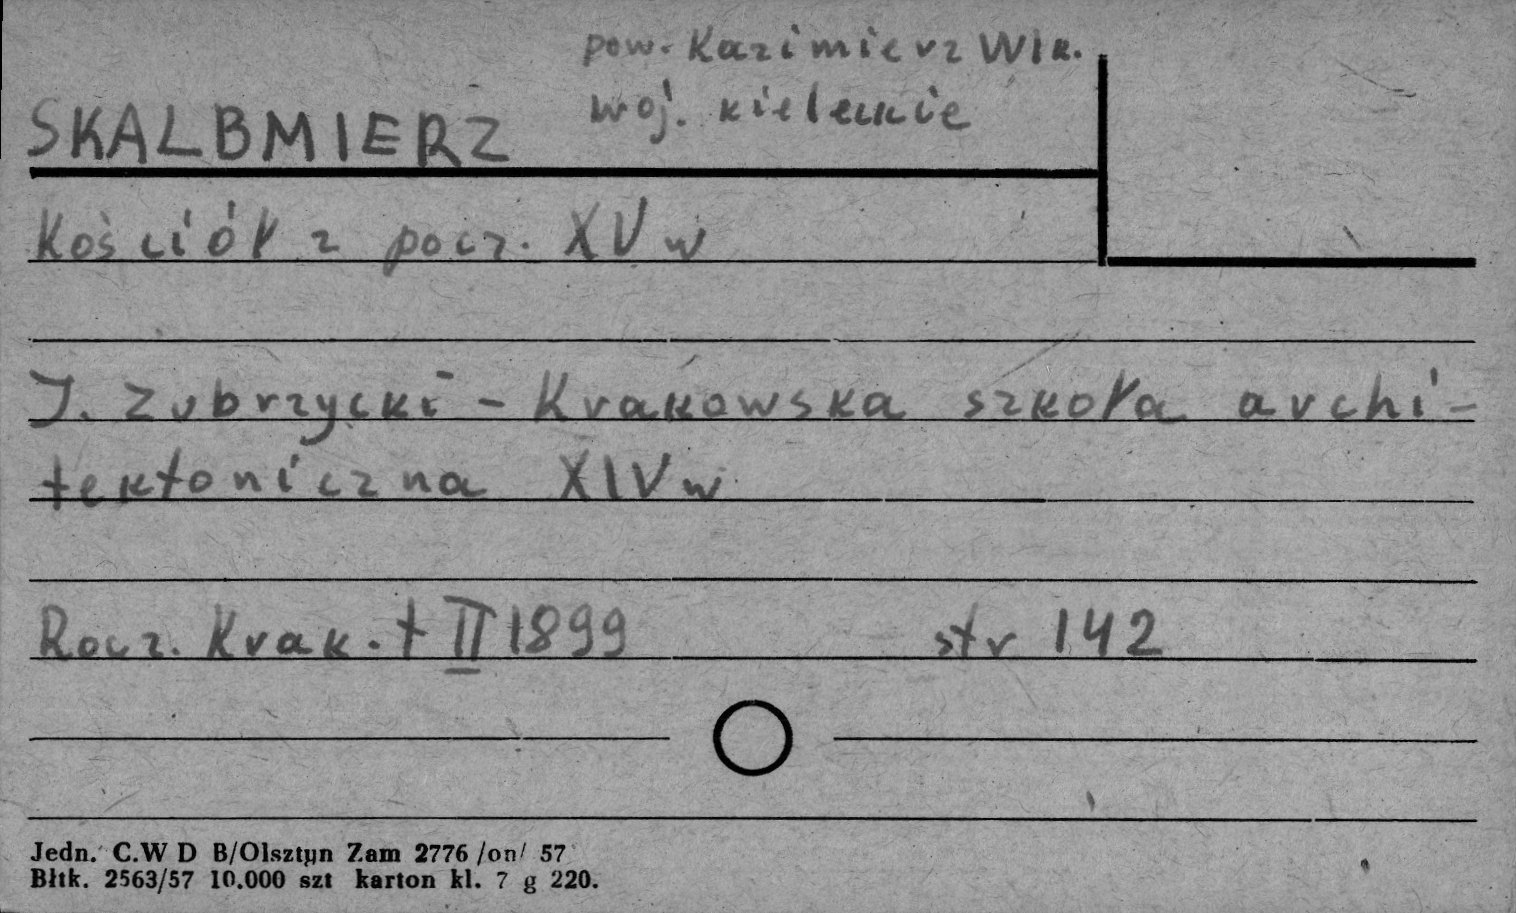 pow. Kazimierz Wlk.
SKALBMIERZ woj. kieleckie
Kościół z pocz. XV w
J. Zubrzycki - Krakowska szkoła archi-
tektoniczna XIV w.
Rocz. Krak. t II 1899 str 142
Jedn. C.W D B/Olsztyn Zam 2776 /on/ 57
Błtk. 2563/57 10.000 szt karton kl. 7 g 220.